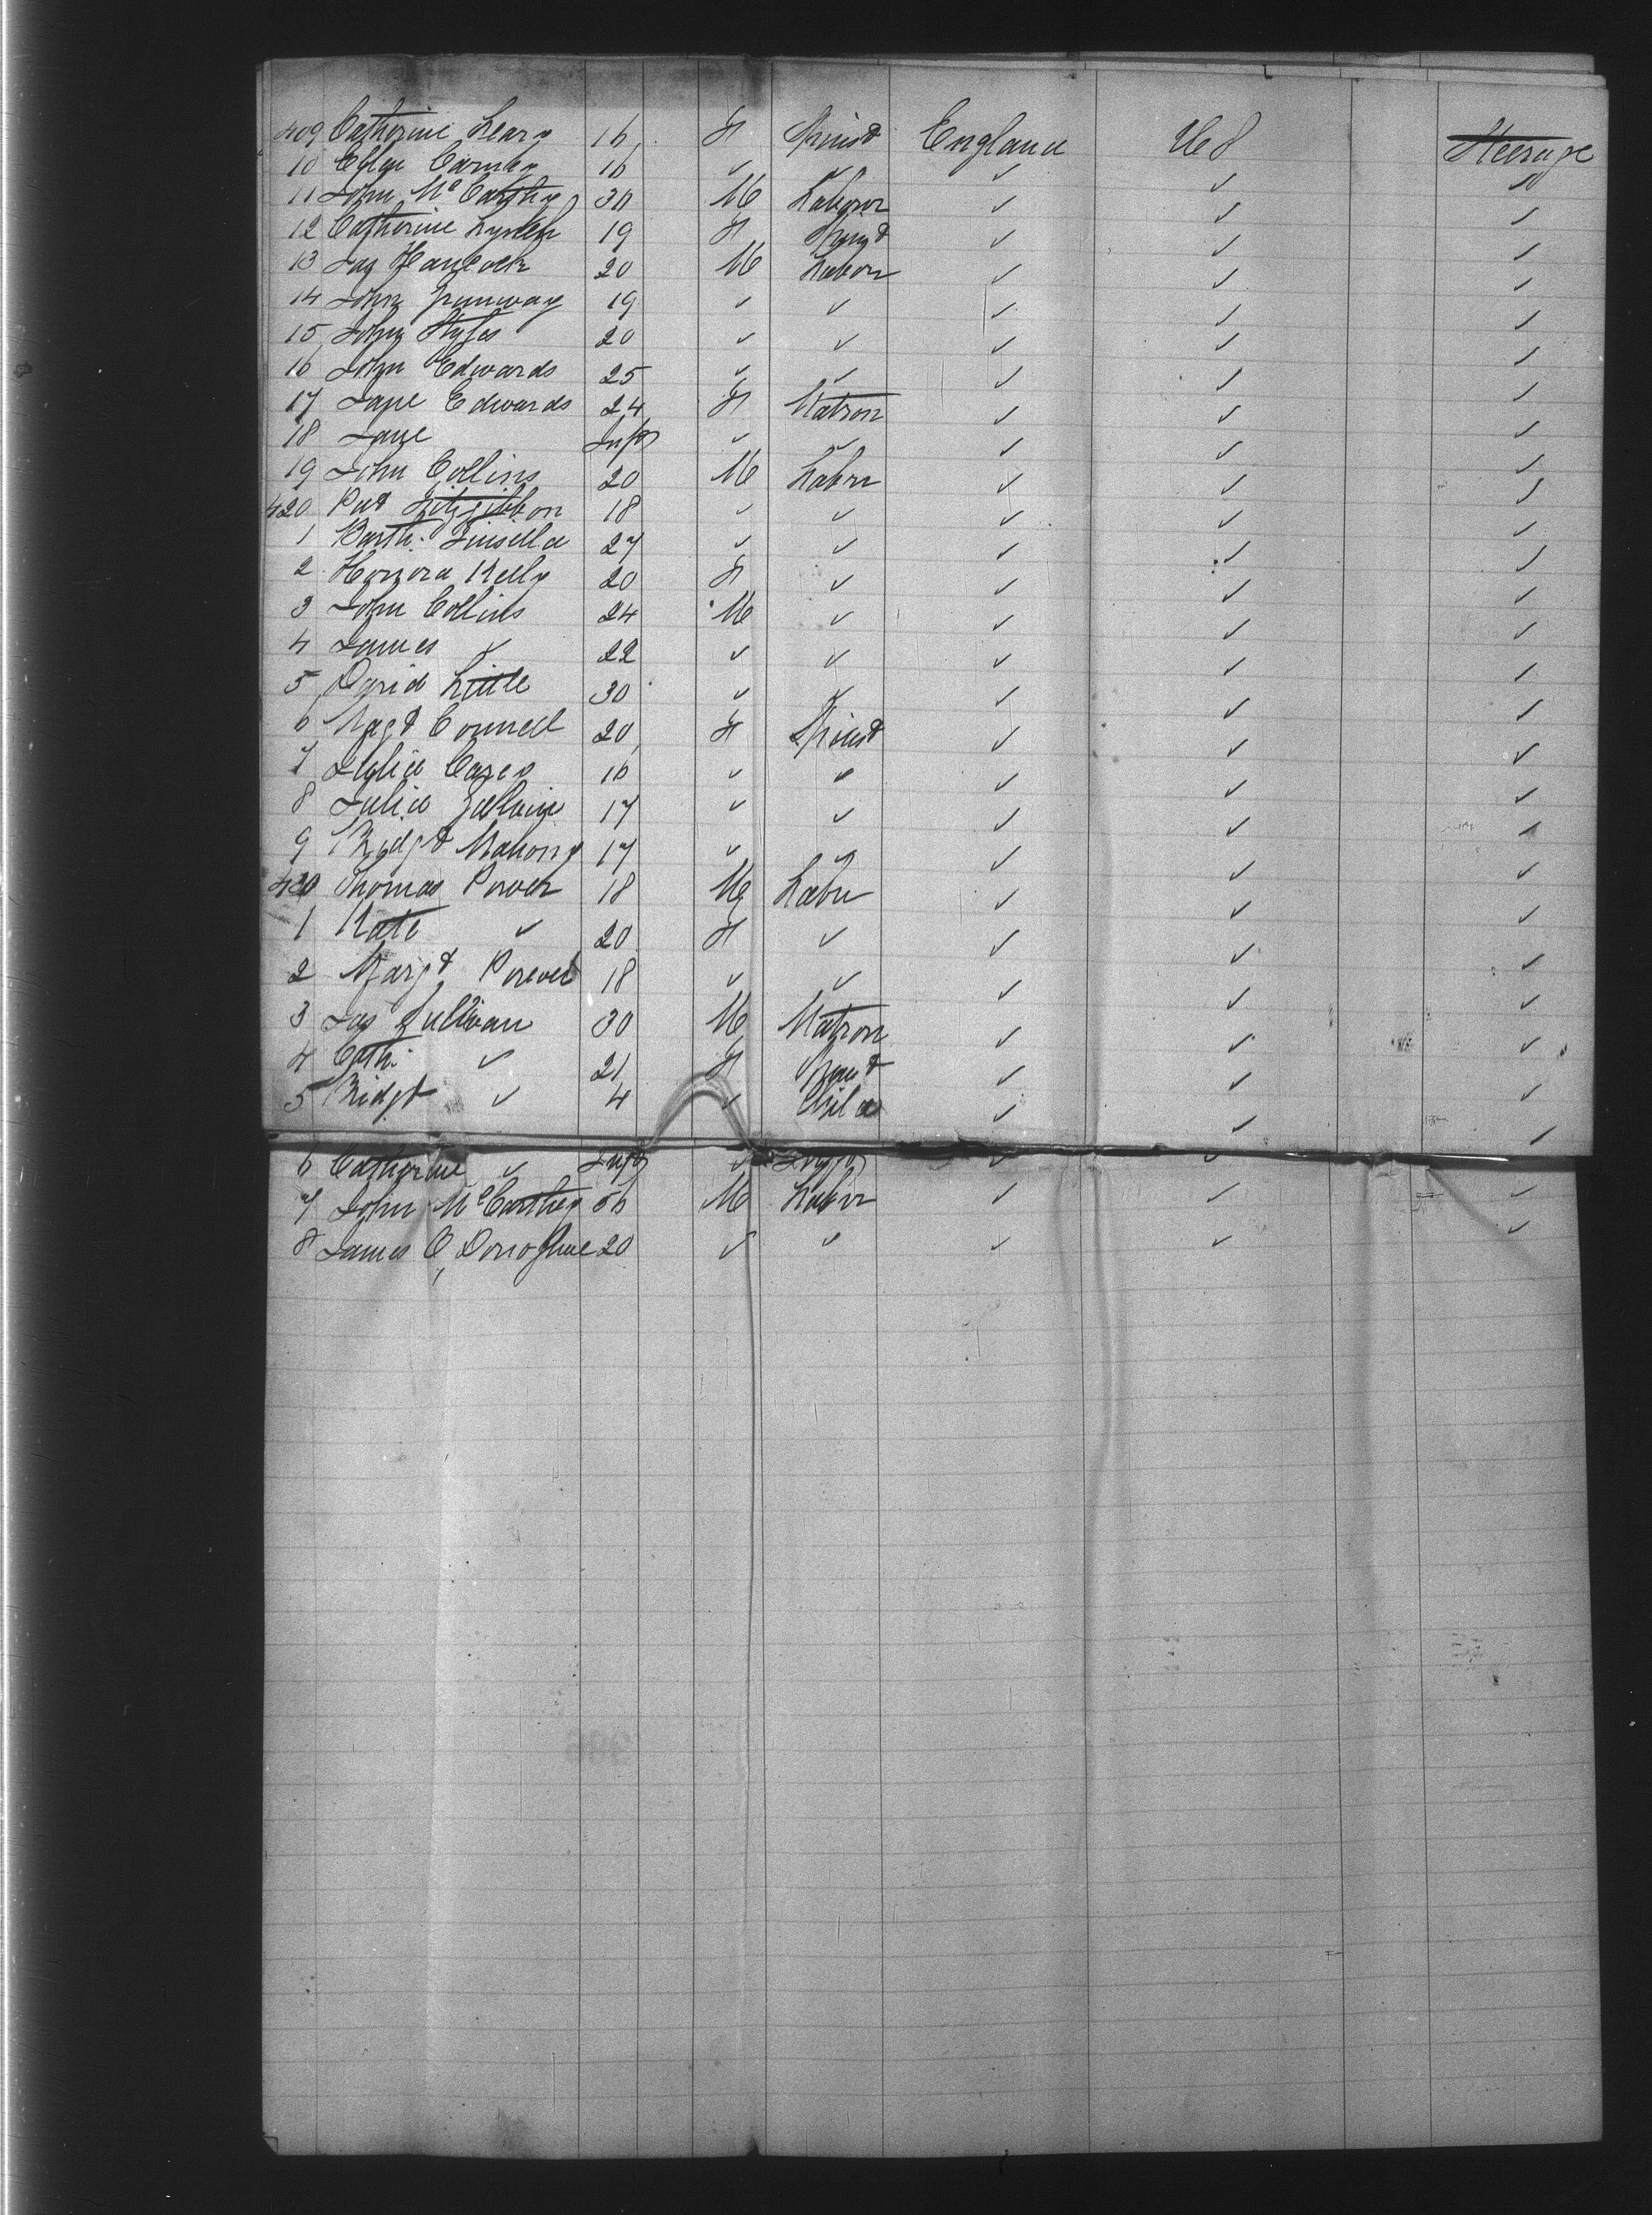 409 Catherine Leary 16 F Spinst England U S Steerage
10 Ellen 16 ✓ ✓ ✓ ✓ ✓
11 John McCarthy 30 M Laborer ✓ ✓ ✓
12 Catherine Lynch 19 F Spinst ✓ ✓ ✓
13 Jas Hancock 20 M Labor ✓ ✓ ✓
14 John 19 ✓ ✓ ✓ ✓ ✓
15 John Styles 20 ✓ ✓ ✓ ✓ ✓
16 John Edwards 25 ✓ ✓ ✓ ✓ ✓
17 Jane Edwards 24 F Matron ✓ ✓ ✓
18 Jane Inft ✓ ✓ ✓ ✓ ✓
19 John Collins 20 M Labr ✓ ✓ ✓
420 Pat Fitzgibbon 18 ✓ ✓ ✓ ✓ ✓
1 Barth. Kinsella 27 ✓ ✓ ✓ ✓ ✓
2 Honora Kelly 20 F ✓ ✓ ✓ ✓
3 John Collins 24 M ✓ ✓ ✓ ✓
4 James ✓ 22 ✓ ✓ ✓ ✓ ✓
5 David Little 30 ✓ ✓ ✓ ✓ ✓
6 Magt Connell 20 F Spinst ✓ ✓ ✓
7 Julia Casey 16 ✓ ✓ ✓ ✓ ✓
8 Julia Galvin 17 ✓ ✓ ✓ ✓ ✓
9 Bridgt Mahony 17 ✓ ✓ ✓ ✓ ✓
430 Thomas Power 18 M Labr ✓ ✓ ✓
1 Kate ✓ 20 F ✓ ✓ ✓ ✓
2 Margt Power 18 ✓ ✓ ✓ ✓ ✓
3 Jas Sullivan 30 M Matron ✓ ✓ ✓
4 Cath. ✓ 21 F Spinst ✓ ✓ ✓
5 Bridgt ✓ 4 ✓ Child ✓ ✓ ✓
6 Catherine ✓ Inft ✓ Inft ✓ ✓
7 John McCarthy 56 M Labor ✓ ✓ ✓
8 James O'Donoghue 20 ✓ ✓ ✓ ✓ ✓